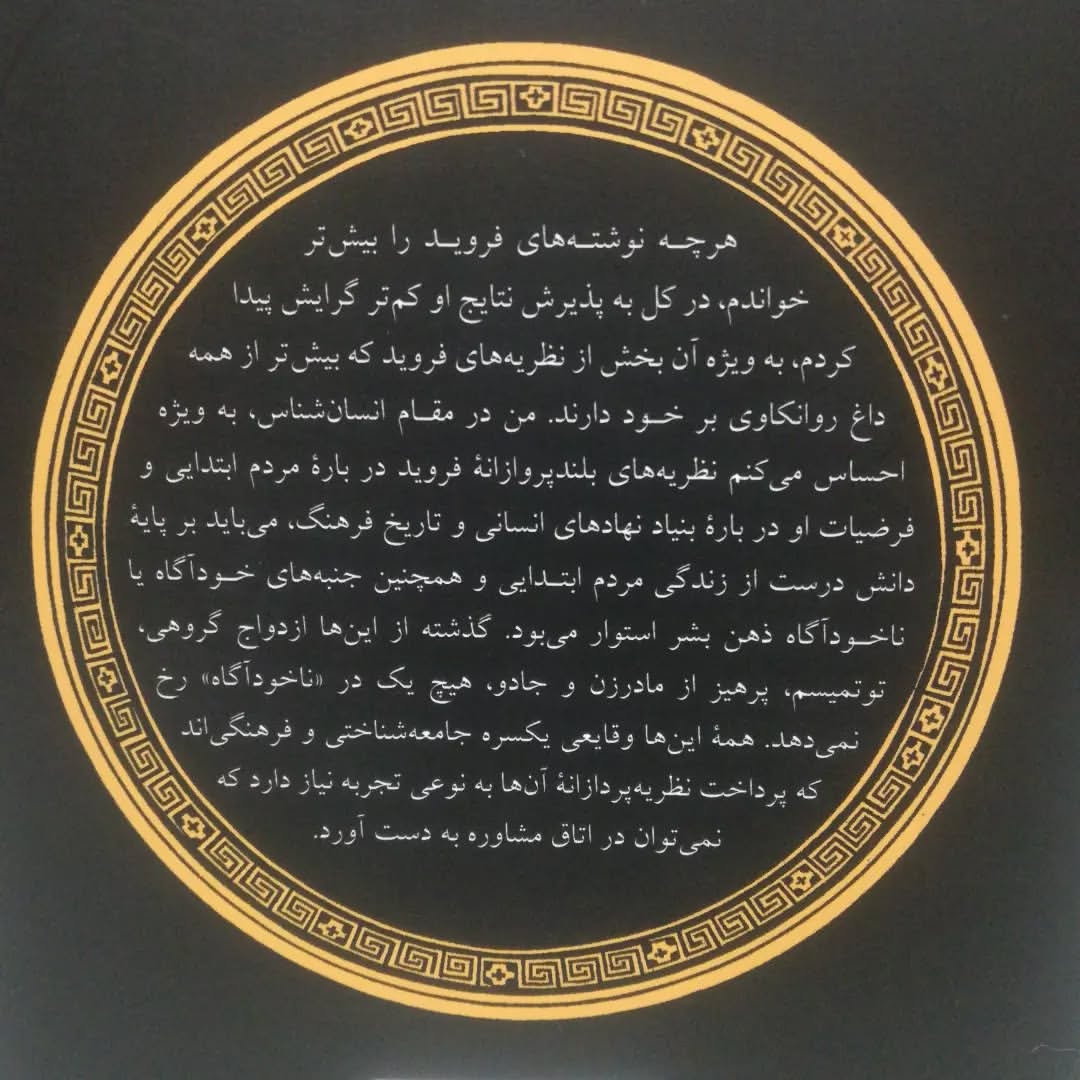 هرچه نوشته‌های فروید را بیش‌تر
خواندم، در کل به پذیرش نتایج او کم‌تر گرایش پیدا
کردم، به ویژه آن بخش از نظریه‌های فروید که بیش‌تر از همه
داغ روانکاوی بر خود دارند. من در مقام انسان‌شناس، به ویژه
احساس می‌کنم نظریه‌های بلندپروازانهٔ فروید در بارهٔ مردم ابتدایی و
فرضیات او در بارهٔ بنیاد نهادهای انسانی و تاریخ فرهنگ، می‌باید بر پایهٔ
دانش درست از زندگی مردم ابتدایی و همچنین جنبه‌های خودآگاه یا
ناخودآگاه ذهن بشر استوار می‌بود. گذشته از این‌ها ازدواج گروهی،
توتمیسم، پرهیز از مادرزن و جادو، هیچ یک در «ناخودآگاه» رخ
نمی‌دهد. همهٔ این‌ها وقایعی یکسره جامعه‌شناختی و فرهنگی‌اند
که پرداخت نظریه‌پردازانهٔ آن‌ها به نوعی تجربه نیاز دارد که
نمی‌توان در اتاق مشاوره به دست آورد.